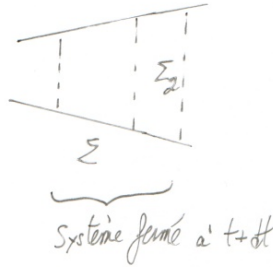 Σ₂
Σ
Système fermé à t+dt